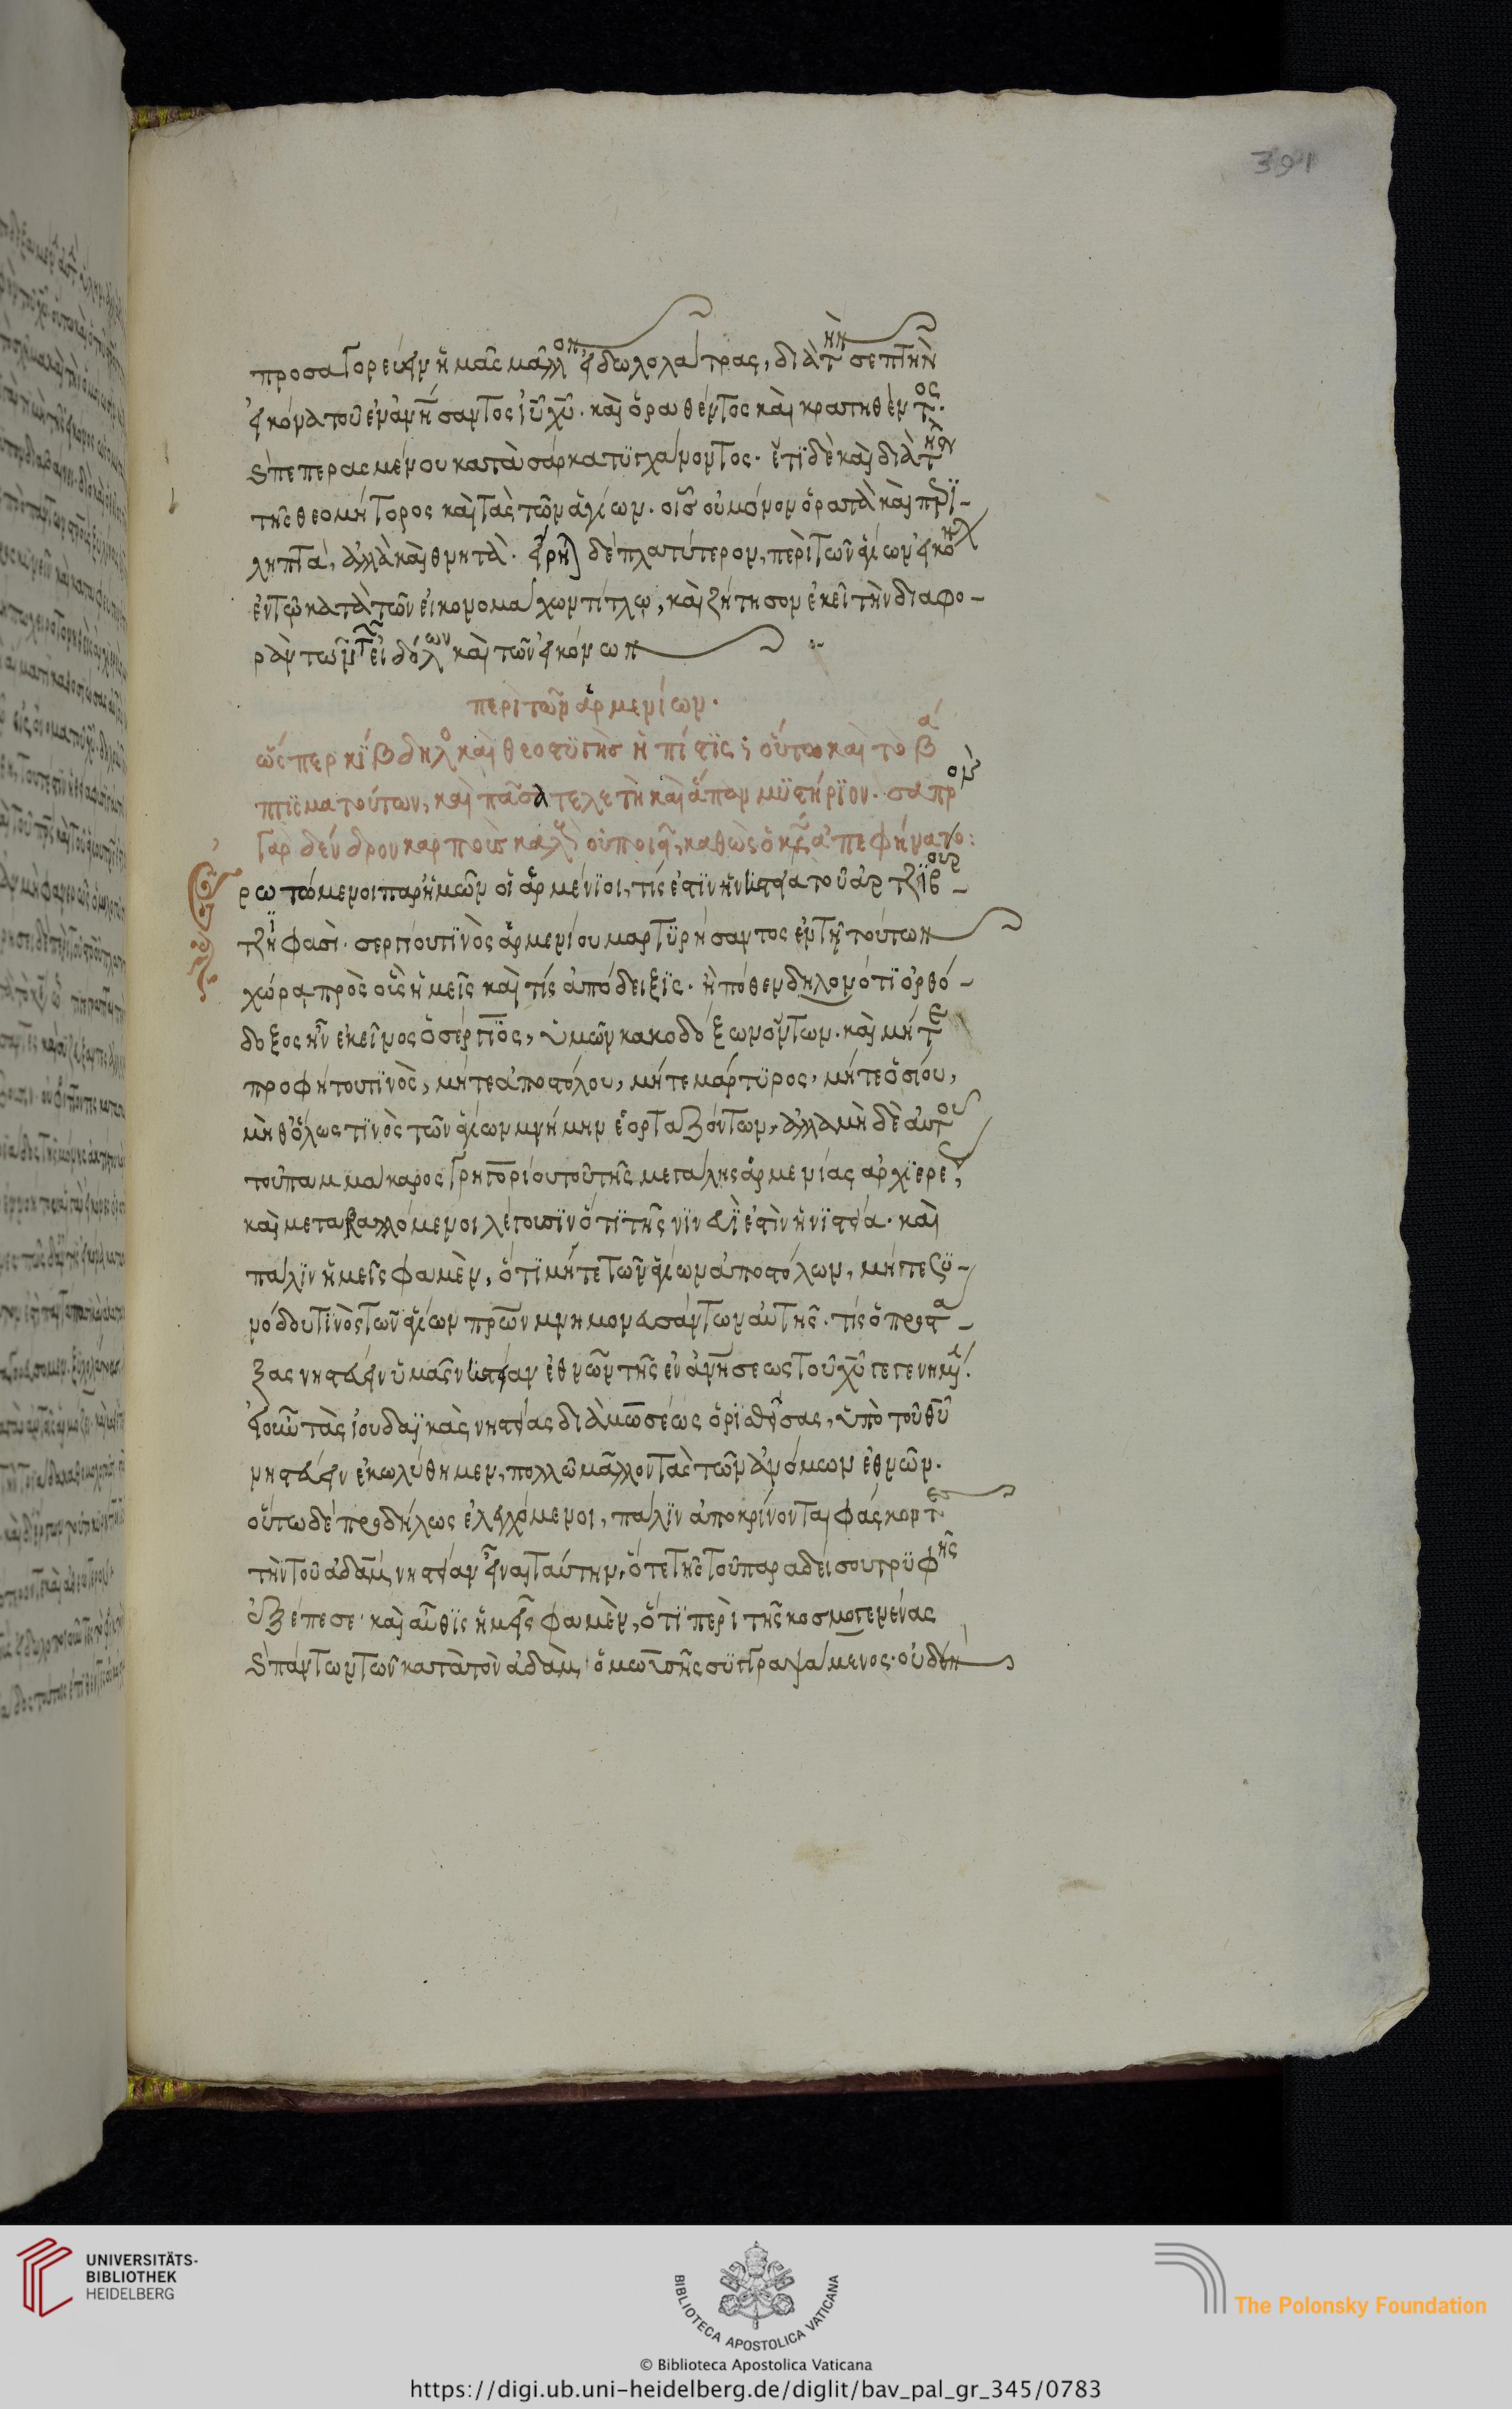 391
προσαγορεύειν ἡμᾶς μᾶλλον εἰδωλολάτρας, διὰ τὴν σεπτὴν
εἰκόνα τοῦ ἐνανθρωπήσαντος ἰῦ χῦ. καὶ ὁραθέντος καὶ κρατηθέντος.
καὶ πεπερασμένου κατὰ σάρκα τυγχάνοντος. ἔτι δὲ καὶ διὰ τὴν
τῆς θεομήτορος καὶ τὰς τῶν ἁγίων. οἳ οὐ μόνον ὁρατὰ καὶ περι-
ληπτά, ἀλλὰ καὶ θνητά. εἴρηται δὲ πλατύτερον, περὶ τῶν ἁγίων εἰκόνων
ἐν τῷ κατὰ τῶν εἰκονομάχων τίτλῳ, καὶ ζήτησον ἐκεῖ τὴν διαφο-
ρὰν τῶν τε εἰδώλων καὶ τῶν εἰκόνων
περὶ τῶν ἀρμενίων.
ὥσπερ κίβδηλος καὶ θεοστυγὴς ἡ πίστις, οὕτω καὶ τὸ βά
πτισμα τούτων, καὶ πᾶσα τελετὴ καὶ ἅπαν μυστήριον. σαπρὸν
γὰρ δένδρον καρποὺς καλοὺς οὐ ποιεῖ, καθὼς ὁ κς ἀπεφήνατο:
Ἐρωτώμενοι παρ' ἡμῶν οἱ ἀρμένιοι, τίς ἐστιν ἡ νηστεία τοῦ ἀρτζιβουρ-
τζῆ φασὶ. σεργίου τινὸς ἀρμενίου μαρτυρήσαντος ἐν τῇ τούτων
χώρᾳ. πρὸς οὓς ἡμεῖς καὶ τίς ἀπόδειξις. ἢ πόθεν δῆλον ὅτι ὀρθό-
δοξος ἦν ἐκεῖνος ὁ σέργιος, ὑμῶν κακοδόξων ὄντων. καὶ μήτε
προφήτου τινὸς, μήτε ἀποστόλου, μήτε μάρτυρος, μήτε ὁσίου,
μηθ' ὅλως τινὸς τῶν ἁγίων μνήμην ἑορταζόντων, ἀλλὰ μηδὲ αὐτοῦ
τοῦ παμμάκαρος γρηγορίου τοῦ τῆς μεγάλης ἀρμενίας ἀρχιερέως,
καὶ μεταβαλλόμενοι λέγουσιν ὅτι τῆς νινευὶ ἐστὶν ἡ νηστεία. καὶ
πάλιν ἡμεῖς φαμὲν, ὅτι μήτε τῶν ἁγίων ἀποστόλων, μήτε συ-
νόδου τινὸς τῶν ἁγίων πρων μνημονευσάντων αὐτῆς. τίς ὁ προστά-
ξας νηστεύειν ὑμᾶς νηστείαν ἐθνῶν τῆς ἐνανθρωπήσεως τοῦ χῦ γεγενημένης.
εἰ οὖν τὰς ἰουδαϊκὰς νηστείας διὰ μωσέως ὁρισθείσας, ὑπὸ τοῦ θῦ
νηστεύειν ἐκωλύθημεν, πολλῷ μᾶλλον τὰς τῶν ἀνόμων ἐθνῶν.
οὕτω δὲ προδήλως ἐλεγχόμενοι, πάλιν ἀποκρίνονται φάσκοντες
τὴν τοῦ ἀδὰμ νηστείαν εἶναι ταύτην, ὅτε τῆς τοῦ παραδείσου τρυφῆς
ἐξέπεσε. καὶ αὖθις ἡμεῖς φαμὲν, ὅτι περὶ τῆς κοσμογενείας
καὶ πάντων τῶν κατὰ τὸν ἀδὰμ, ὁ μωυσῆς συγγραψάμενος. οὐδὲν
UNIVERSITÄTS-
BIBLIOTHEK
HEIDELBERG
BIBLIOTECA APOSTOLICA VATICANA
The Polonsky Foundation
© Biblioteca Apostolica Vaticana
https://digi.ub.uni-heidelberg.de/diglit/bav_pal_gr_345/0783